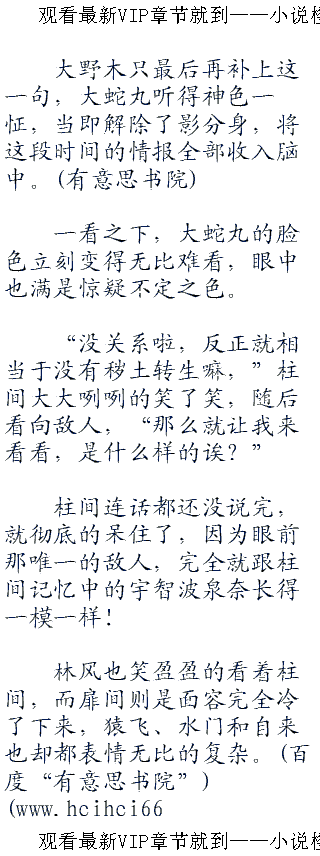 观看最新VIP章节就到——小说检
大野木只最后再补上这
一句，大蛇丸听得神色一
怔，当即解除了影分身，将
这段时间的情报全部收入脑
中。(有意思书院)
一看之下，大蛇丸的脸
色立刻变得无比难看，眼中
也满是惊疑不定之色。
“没关系啦，反正就相
当于没有秽土转生嘛，”柱
间大大咧咧的笑了笑，随后
看向敌人，“那么就让我来
看看，是什么样的诶？”
柱间连话都还没说完，
就彻底的呆住了，因为眼前
那唯一的敌人，完全就跟柱
间记忆中的宇智波泉奈长得
一模一样！
林风也笑盈盈的看着柱
间，而扉间则是面容完全冷
了下来，猿飞、水门和自来
也却都表情无比的复杂。(百
度“有意思书院”)
(www.hcihci66
观看最新VIP章节就到——小说检